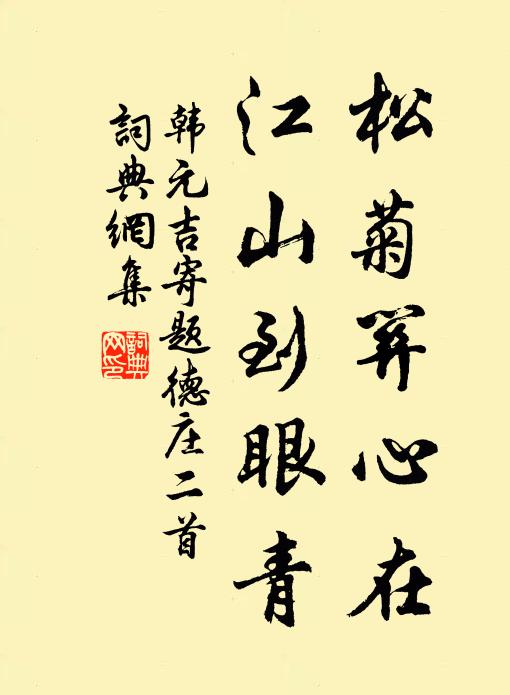 松菊關心在
江山到眼青
韩元吉寄题德庄二首
詞典網集
詞典
网印